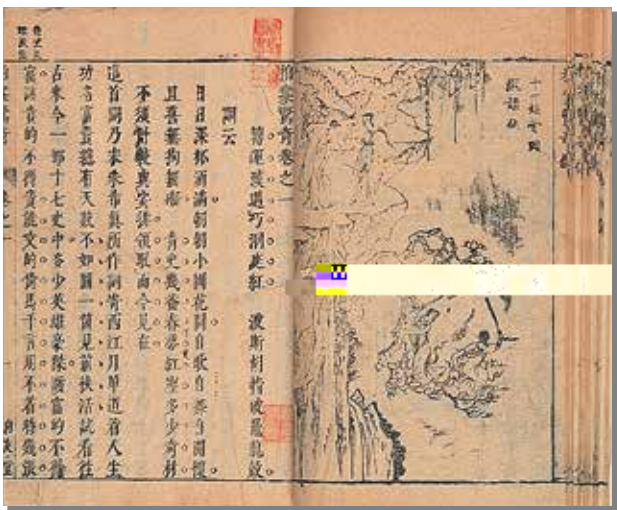 十一娘雲岡
縱譚俠
拍案驚奇卷之一
轉運漢遇巧洞庭紅 波斯胡指破鼉龍殼
詞云
日日深杯酒滿朝朝小圃花開自歌自舞自開懷
且喜無拘無礙 青史幾番春夢紅塵多少奇材
不須計較與安排領取而今見在
這首詞乃宋朱希真所作詞寄西江月單道着人生
功名富貴總有天數不如圖一箇見前快活試看往
古來今一部十七史中多少英雄豪傑該富的不得
富該貴的不得貴能文的倚馬千言用不着時幾張